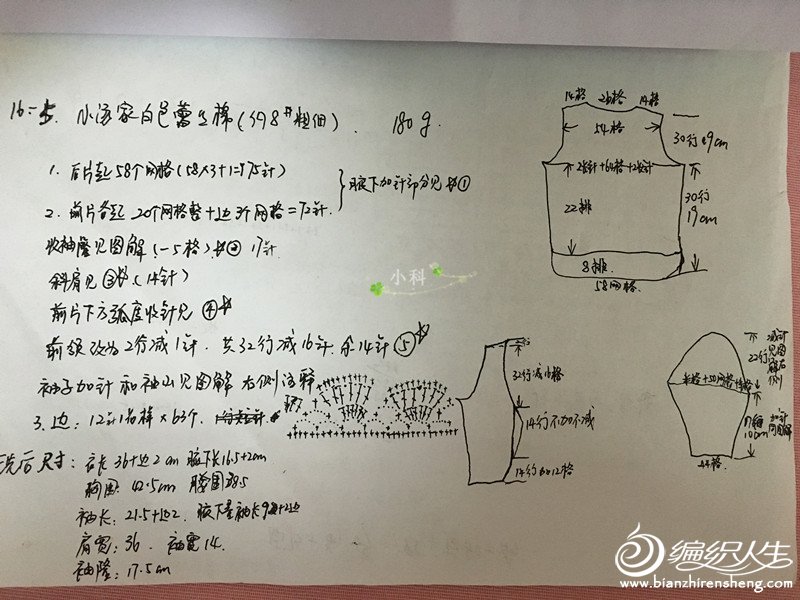 16-5. 小汤家白色蕾丝棉(约8#粗细). 180g.
1. 后片起58个网格(58×3+1=175针)
2. 前片各起20个网格整+边3个网格=72针
腋下加针部分见①
收袖窿见图解(-5格)② 17针
斜肩见③(14针)
前片下方弧度收针见④
前领改为2行减1针. 共32行减16针. 余14针⑤
袖子加针和袖山见图解右侧注释
3. 边: 12针1花样×63个.
洗后尺寸: 衣长36+边2cm 腋下长16.5+2cm
胸围: 42.5cm 腰围38.5
袖长: 21.5+边2. 腋下至袖长9+2边
肩宽: 36. 袖宽14.
袖窿: 17.5cm
14格 26格 14格
54格
30行19cm
22排
30行
19cm
8排
58网格
32行减16格
14行不加不减
14行加12格
减针
见图
解右
侧
22行
10cm
44格
小科
编织人生
www.bianzhirensheng.com